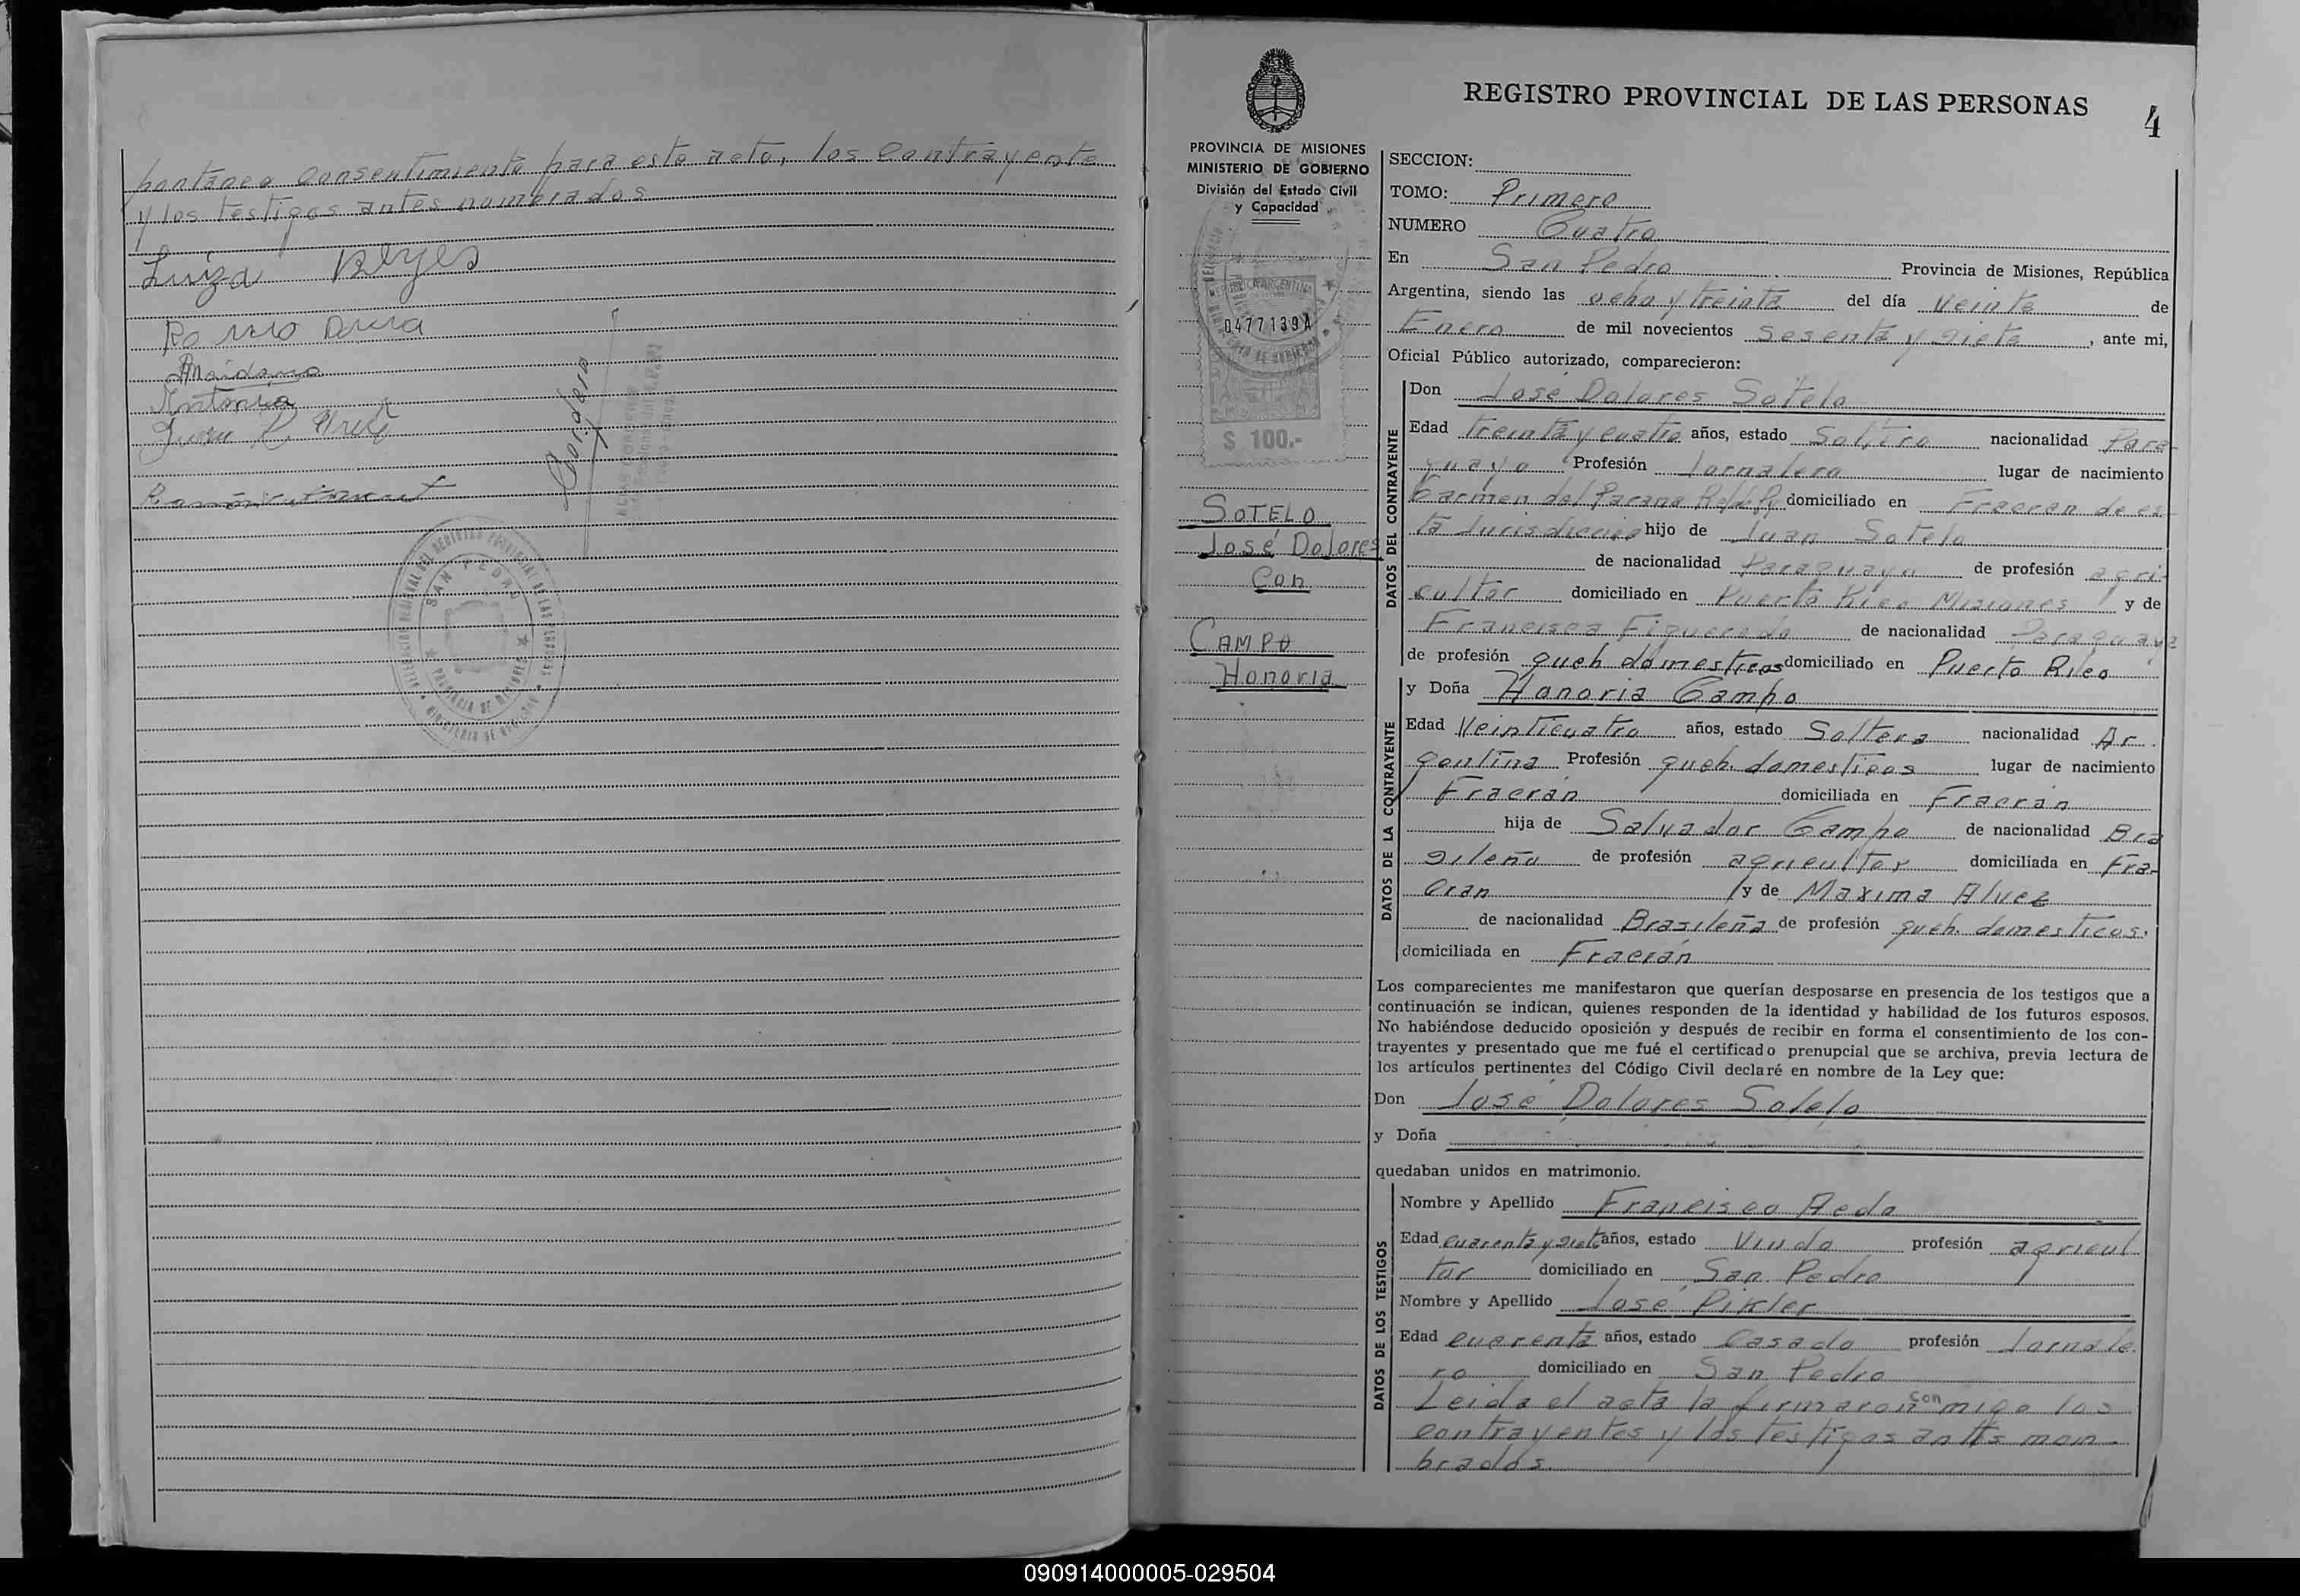 pontaneo consentimiento para este acto, los Contrayente
y los testigos antes nombrados
Luiza Reyes
Maidana
Antonia
REGISTRO PROVINCIAL DE LAS PERSONAS
4
PROVINCIA DE MISIONES
MINISTERIO DE GOBIERNO
División del Estado Civil
y Capacidad
REPUBLICA ARGENTINA
0477139A
$ 100.-
SOTELO
José Dolores
Con
CAMPO
Honoria
SECCION:
TOMO: Primero
NUMERO Cuatro
En San Pedro Provincia de Misiones, República
Argentina, siendo las ocho y treinta del día Veinte de
Enero de mil novecientos Sesenta y siete, ante mi,
Oficial Público autorizado, comparecieron:
DATOS DEL CONTRAYENTE
Don José Dolores Sotelo
Edad treinta y cuatro años, estado Soltero nacionalidad Para-
guayo Profesión Jornalero lugar de nacimiento
Carmen del Parana domiciliado en Fracran de es-
ta Jurisdiccio hijo de Juan Sotelo
de nacionalidad Paraguaya de profesión agri-
cultor domiciliado en Puerto Rico Misiones y de
Francisca Figueredo de nacionalidad Paraguaya
de profesión queh domesticos domiciliado en Puerto Rico
DATOS DE LA CONTRAYENTE
y Doña Honoria Campo
Edad Veinticuatro años, estado Soltera nacionalidad Ar-
gentina Profesión queh. domesticos lugar de nacimiento
Fracrán domiciliada en Fracran
hija de Salvador Campo de nacionalidad Bra
sileño de profesión agricultor domiciliada en Fra-
cran y de Maxima Alvez
de nacionalidad Brasileña de profesión queh. domesticos.
domiciliada en Fracrán
Los comparecientes me manifestaron que querían desposarse en presencia de los testigos que a
continuación se indican, quienes responden de la identidad y habilidad de los futuros esposos.
No habiéndose deducido oposición y después de recibir en forma el consentimiento de los con-
trayentes y presentado que me fué el certificado prenupcial que se archiva, previa lectura de
los artículos pertinentes del Código Civil declaré en nombre de la Ley que:
Don José Dolores Sotelo
y Doña
quedaban unidos en matrimonio.
DATOS DE LOS TESTIGOS
Nombre y Apellido Francisco Aedo
Edad cuarenta y siete años, estado Viudo profesión agricul
tor domiciliado en San Pedro
Nombre y Apellido José Pikler
Edad cuarenta años, estado Casado profesión Jornale
ro domiciliado en San Pedro
Leida el acta la firmaron con migo los
contrayentes y los testigos antes mon-
brados.
090914000005-029504